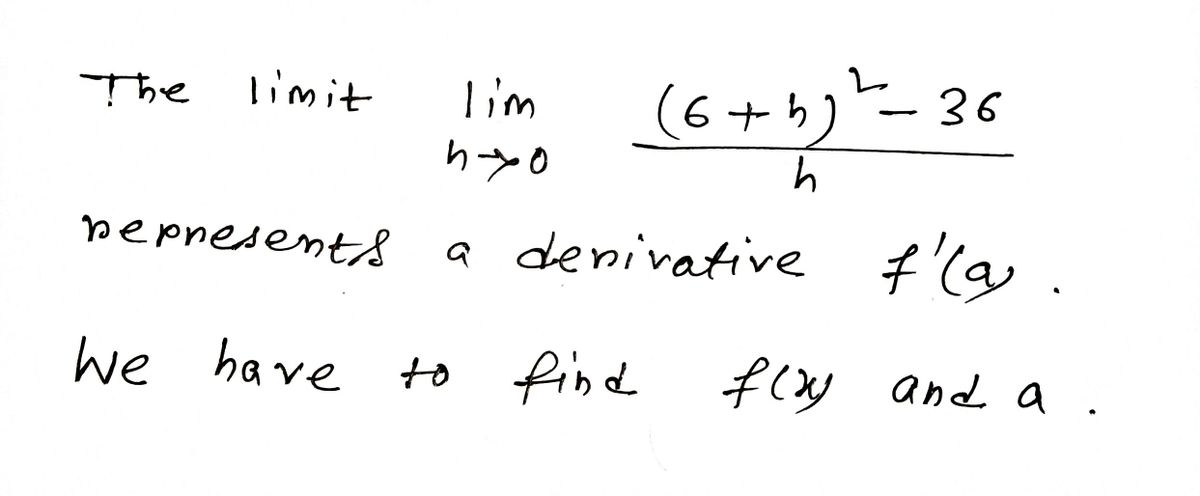 The limit lim h→0 (6+h)² - 36 / h
represents a derivative f'(a).
We have to find f(x) and a.